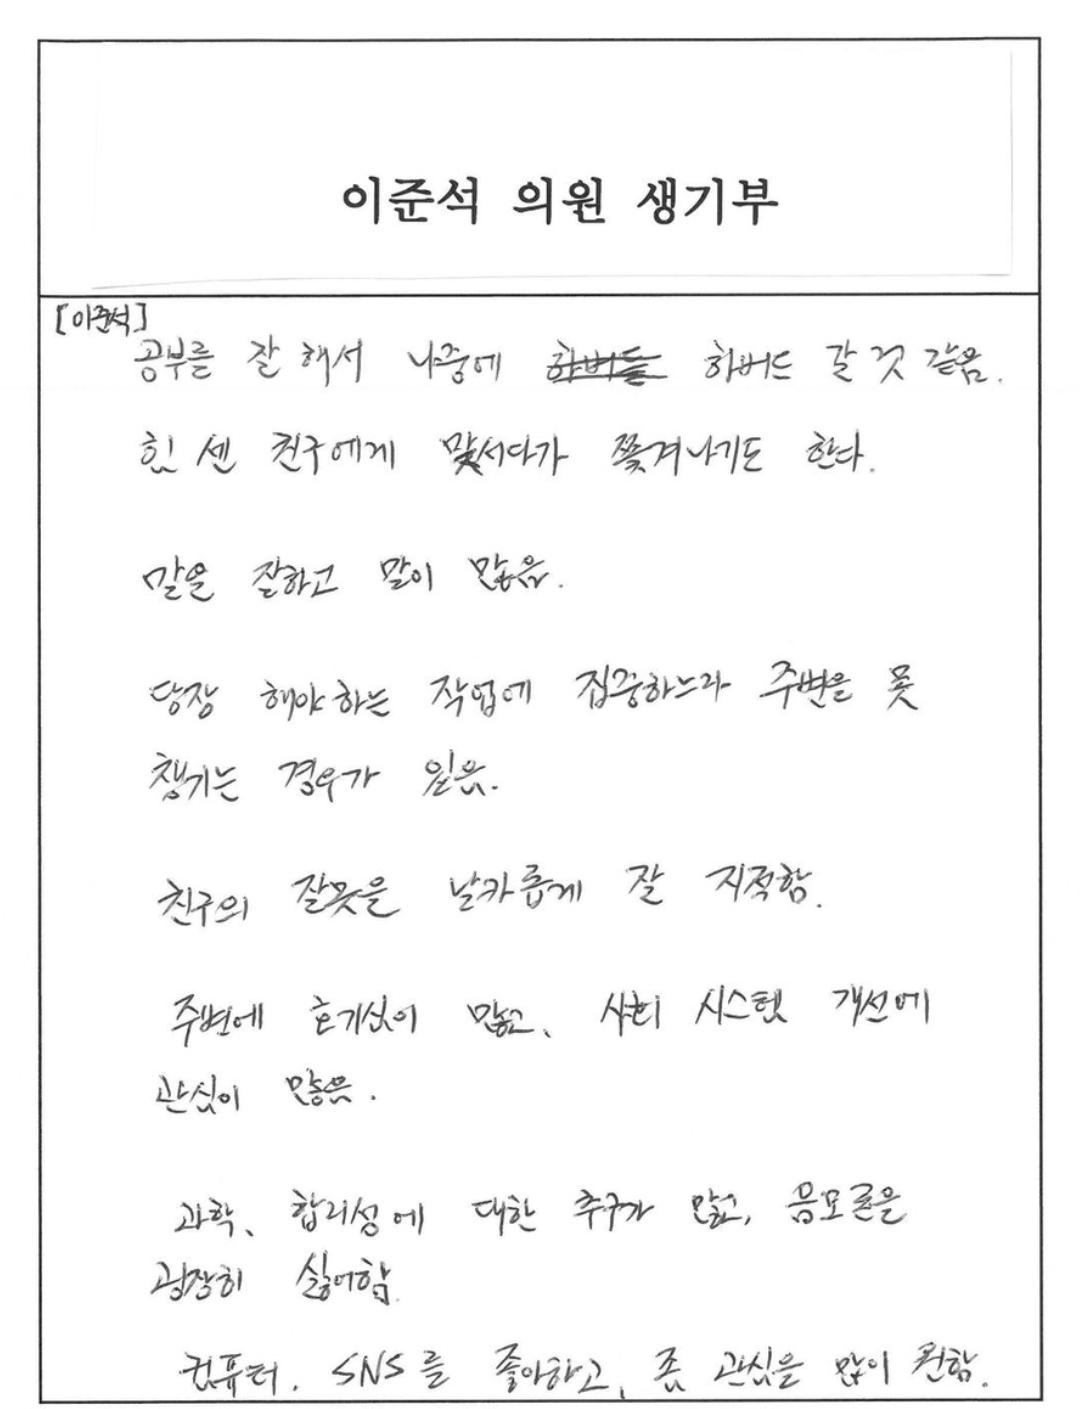 이준석 의원 생기부
[이준석]
공부를 잘 해서 나중에 하버들 하버드 갈 것 같음.
힘 센 친구에게 맞서다가 쫓겨나기도 한다.
말을 잘하고 말이 많음.
당장 해야하는 작업에 집중하느라 주변을 못
챙기는 경우가 있음.
친구의 잘못을 날카롭게 잘 지적함.
주변에 호기심이 많고, 사회 시스템 개선에
관심이 많음.
과학, 합리성에 대한 추구가 많고, 음모론을
굉장히 싫어함.
컴퓨터, SNS를 좋아하고, 좀 관심을 많이 원함.